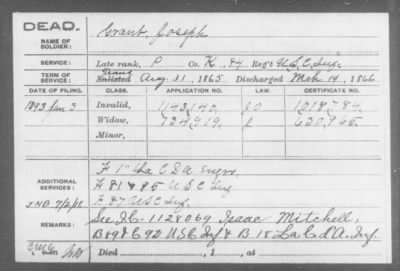 DEAD.
NAME OF SOLDIER: Grant, Joseph
SERVICE: Late rank, P Co. K, 84 Reg't U.S.C. Inf.
TERM OF SERVICE: Enlisted Aug. 31, 1865 Discharged Mch 14, 1866
DATE OF FILING. CLASS. APPLICATION NO. LAW. CERTIFICATE NO.
1893 Jan. 3 Invalid, 1143,140
Widow, 734,419
Minor,
ADDITIONAL SERVICES:
F 81 & 85 U S C Inf
K 87 U S C Inf.
REMARKS: See I.C. 1128069 Isaac Mitchell,
B 89 & C 92 U S C Inf & B 15 La C d'A. Inf
Died , 1 , at